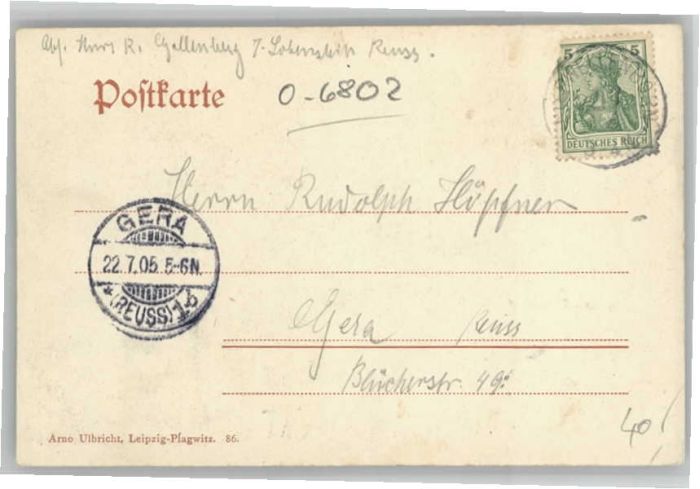 Abs. Kurt R. Gallenberg
Reuss.
Postkarte
0-6802
5 5
DEUTSCHES REICH
Herrn Rudolph Höpfner
GERA
22.7.05 5-6N.
*(REUSS)1b
Gera Reuss
Blücherstr. 49
40
Arno Ulbricht, Leipzig-Plagwitz. 86.